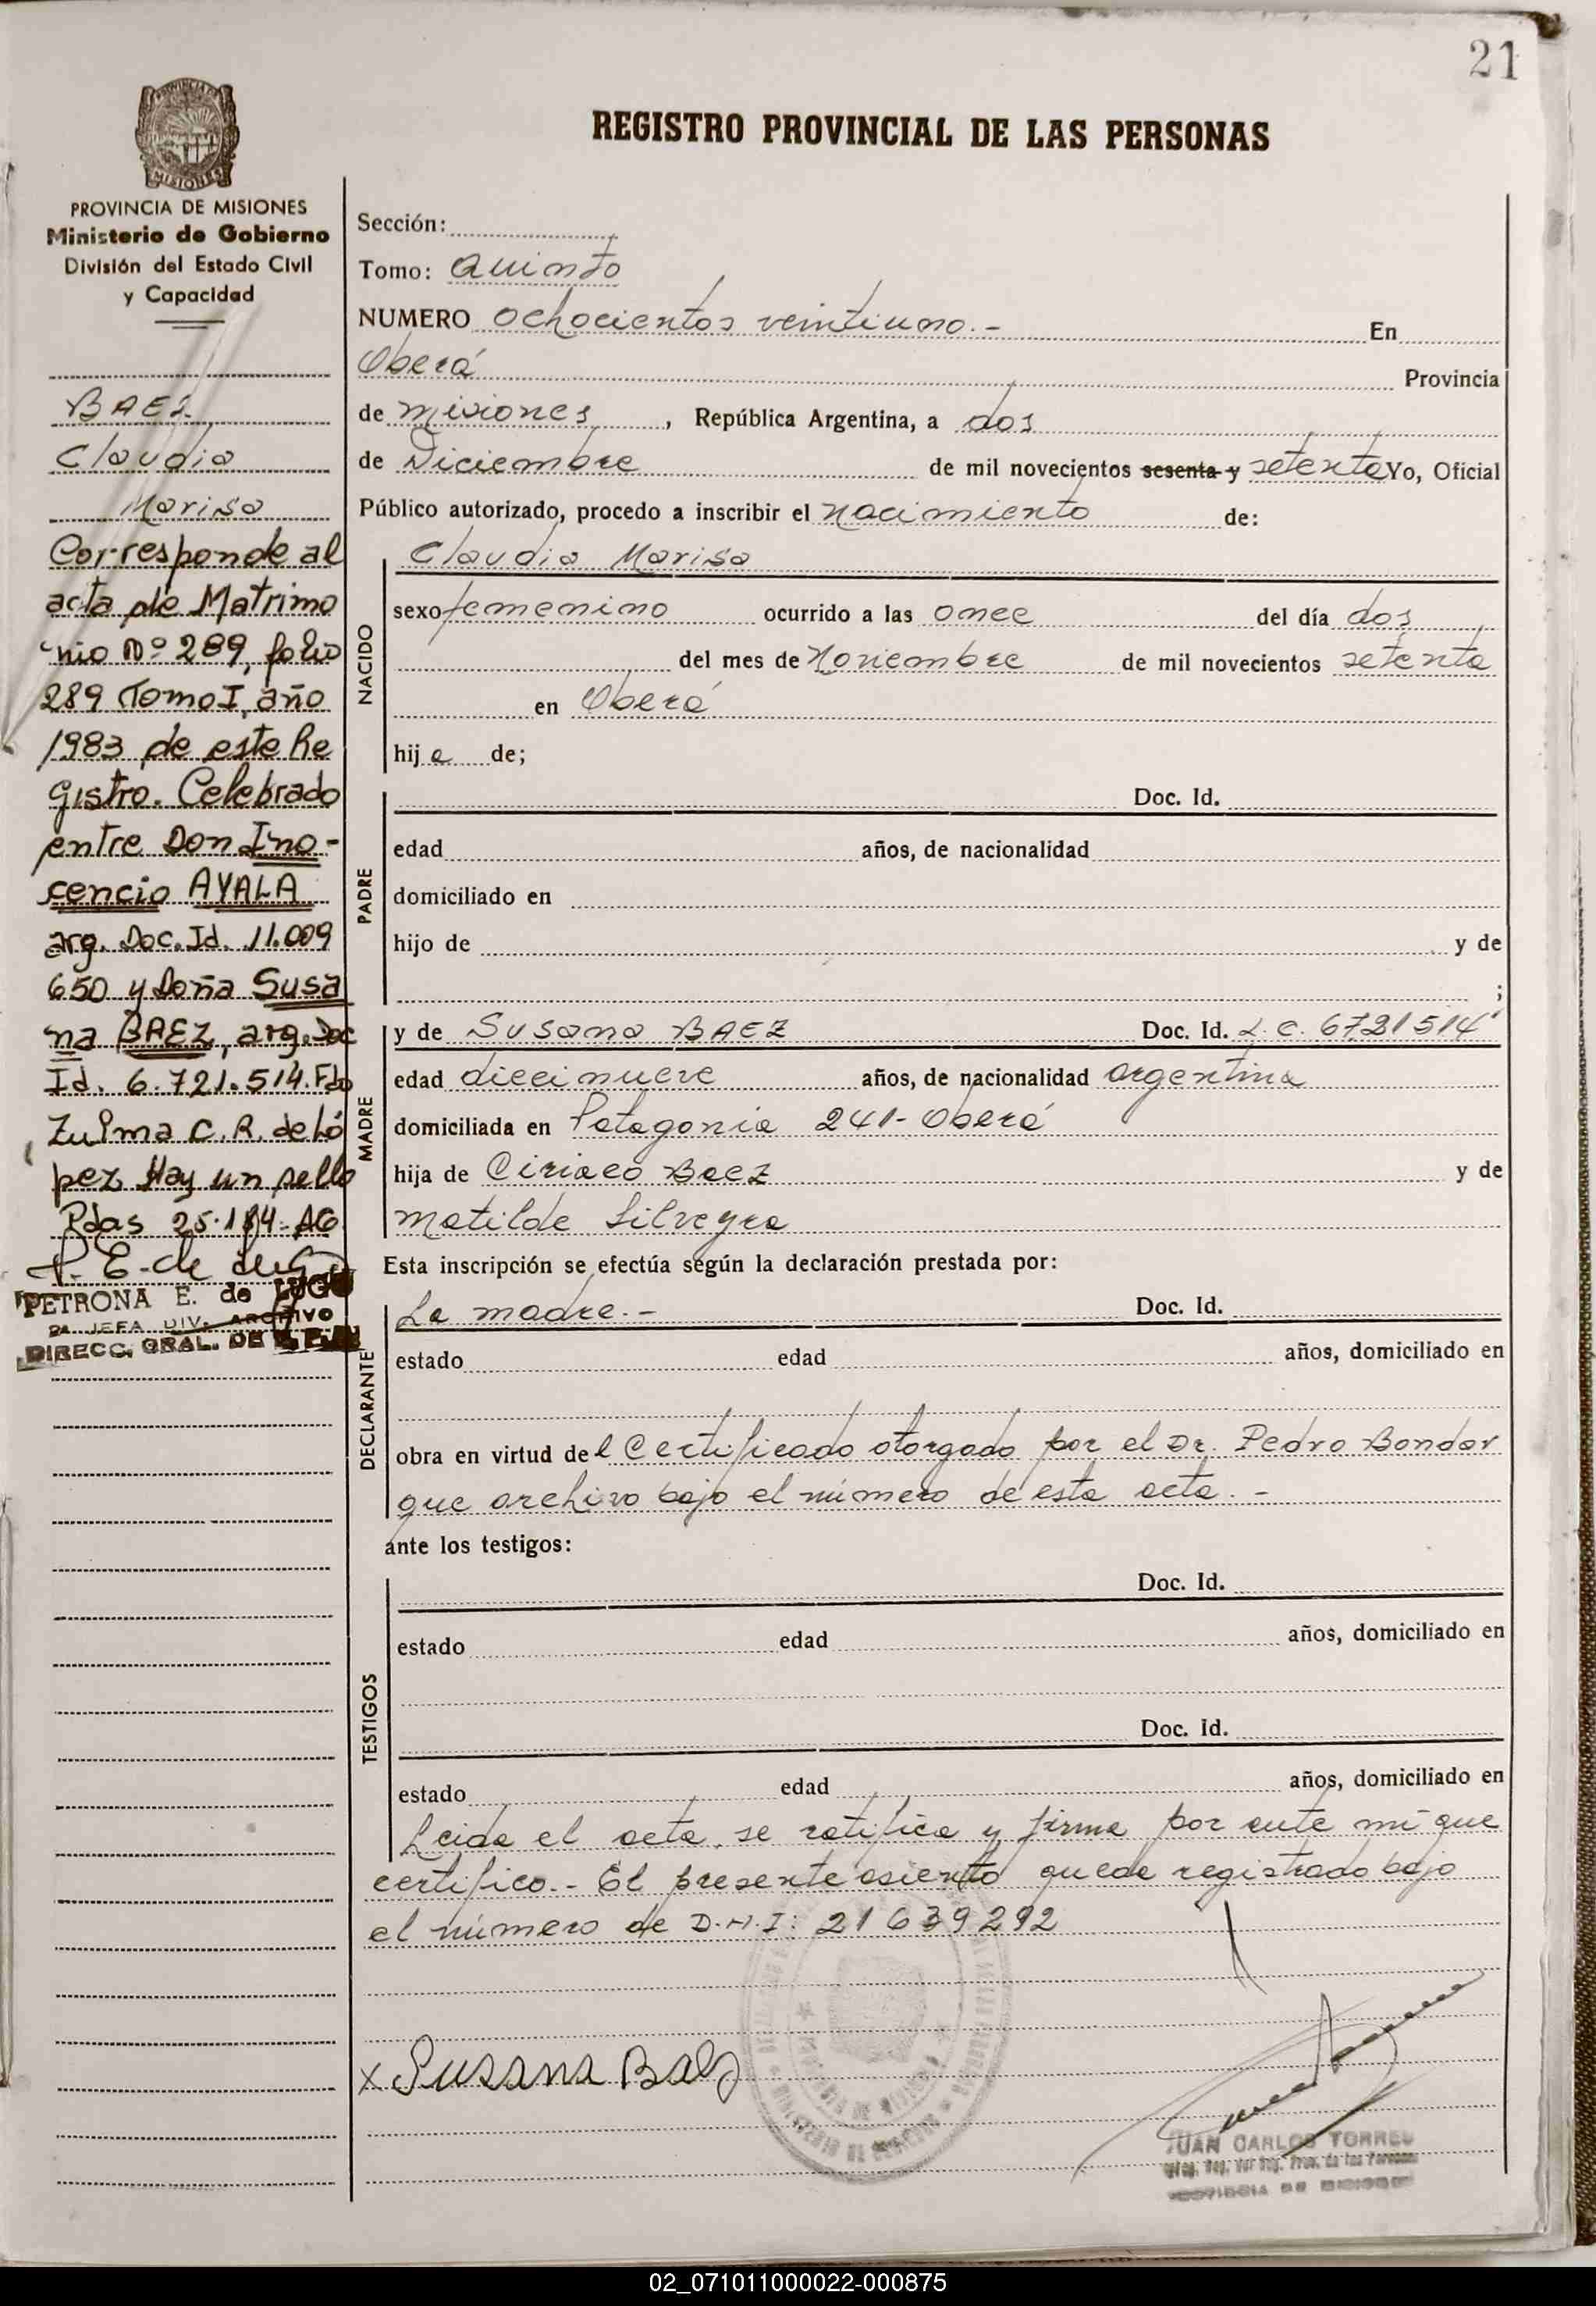 21
REGISTRO PROVINCIAL DE LAS PERSONAS
PROVINCIA DE
MISIONES
PROVINCIA DE MISIONES
Ministerio de Gobierno
División del Estado Civil
y Capacidad
BAEZ
Claudia
Marisa
Corresponde al
acta de Matrimo
nio Nº 289, folio
289 Tomo I, año
1983 de este Re
gistro. Celebrado
entre Don Ino-
cencio AYALA
arg. Doc. Id. 11.009
650 y Doña Susa
na BAEZ, arg. Doc
Id. 6.721.514. Fdo
Zulma C. R. de Ló
pez Hay un sello
Pdas 25.1.84. AG
P. E. de Lugo
PETRONA E. de LUGO
JEFA DIV. ARCHIVO
DIRECC. GRAL. DE
Sección:
Tomo: Quinto
NUMERO Ochocientos veintiuno.- En
Oberá Provincia
de Misiones, República Argentina, a dos
de Diciembre de mil novecientos sesenta y setenta Yo, Oficial
Público autorizado, procedo a inscribir el Nacimiento de:
NACIDO
Claudia Marisa
sexo femenino ocurrido a las once del día dos
del mes de Noviembre de mil novecientos setenta
en Oberá
hij a de;
PADRE
Doc. Id.
edad años, de nacionalidad
domiciliado en
hijo de y de
;
MADRE
y de Susana BAEZ Doc. Id. L.C. 6721514
edad diecinueve años, de nacionalidad argentina
domiciliada en Patagonia 241- Oberá
hija de Ciriaco Baez y de
Matilde Silveyra
Esta inscripción se efectúa según la declaración prestada por:
DECLARANTE
La madre.- Doc. Id.
estado edad años, domiciliado en
obra en virtud del Certificado otorgado por el Dr. Pedro Bondar
que archivo bajo el número de esta acta.-
ante los testigos:
TESTIGOS
Doc. Id.
estado edad años, domiciliado en
Doc. Id.
estado edad años, domiciliado en
Leida el acta, se ratifica y firma por ante mí que
certifico.- El presente asiento queda registrado bajo
el número de D.N.I: 21639292
x Susana Baez
JUAN CARLOS TORRES
PROVINCIA DE MISIONES
02_071011000022-000875